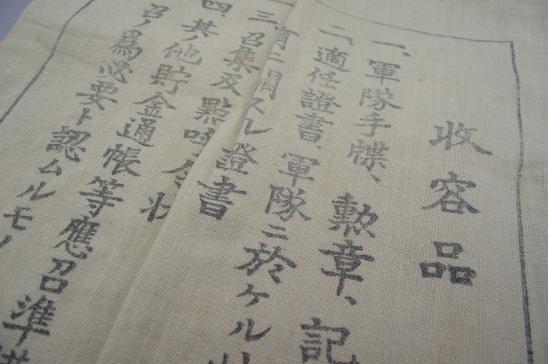 收容品
一、軍隊手牒、勲章、記
二、適任證書、軍隊ニ於ケル
ニ關スル證書
三、召集及點呼令狀
四、其他貯金通帳等應召準
召ノ爲必要ト認ムルモノ